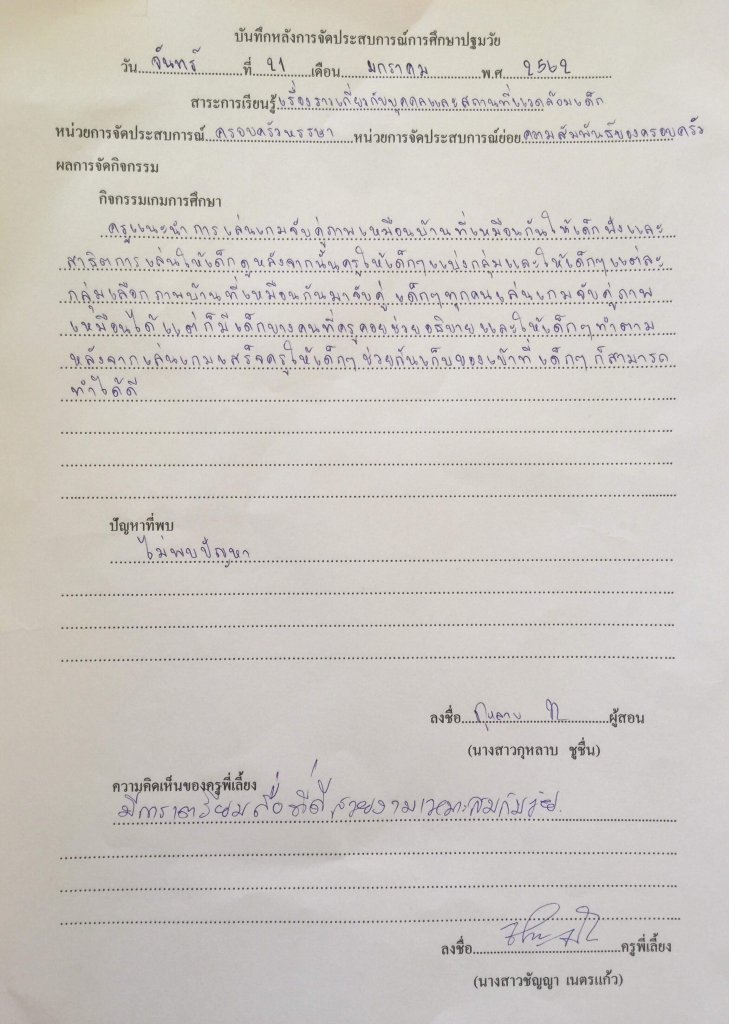 บันทึกหลังการจัดประสบการณ์การศึกษาปฐมวัย
วัน จันทร์ ที่ 21 เดือน มกราคม พ.ศ 2562
สาระการเรียนรู้ เรื่องราวเกี่ยวกับบุคคลและสถานที่แวดล้อมเด็ก
หน่วยการจัดประสบการณ์ ครอบครัวหรรษา หน่วยการจัดประสบการณ์ย่อย ความสัมพันธ์ของครอบครัว
ผลการจัดกิจกรรม
กิจกรรมเกมการศึกษา
ครูแนะนำการเล่นเกมจับคู่ภาพเหมือนบ้านที่เหมือนกันให้เด็กฟังและ
สาธิตการเล่นให้เด็กดูหลังจากนั้นครูให้เด็กๆแบ่งกลุ่มและให้เด็กๆแต่ละ
กลุ่มเลือกภาพบ้านที่เหมือนกันมาจับคู่ เด็กๆทุกคนเล่นเกมจับคู่ภาพ
เหมือนได้แต่ก็มีเด็กบางคนที่ครูคอยช่วยอธิบายและให้เด็กๆทำตาม
หลังจากเล่นเกมเสร็จครูให้เด็กๆช่วยกันเก็บของเข้าที่เด็กๆก็สามารถ
ทำได้ดี
ปัญหาที่พบ
ไม่พบปัญหา
ลงชื่อ กุหลาบ ช ผู้สอน
(นางสาวกุหลาบ ชูชื่น)
ความคิดเห็นของครูพี่เลี้ยง
มีการเตรียมสื่อที่ดี สวยงามเหมาะสมกับวัย
ลงชื่อ ครูพี่เลี้ยง
(นางสาวชัญญา เนตรแก้ว)